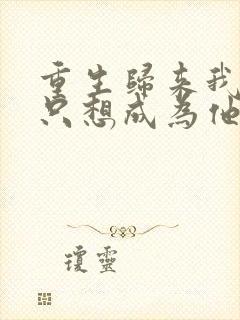 重生歸來我
只想成為他
瓊靈